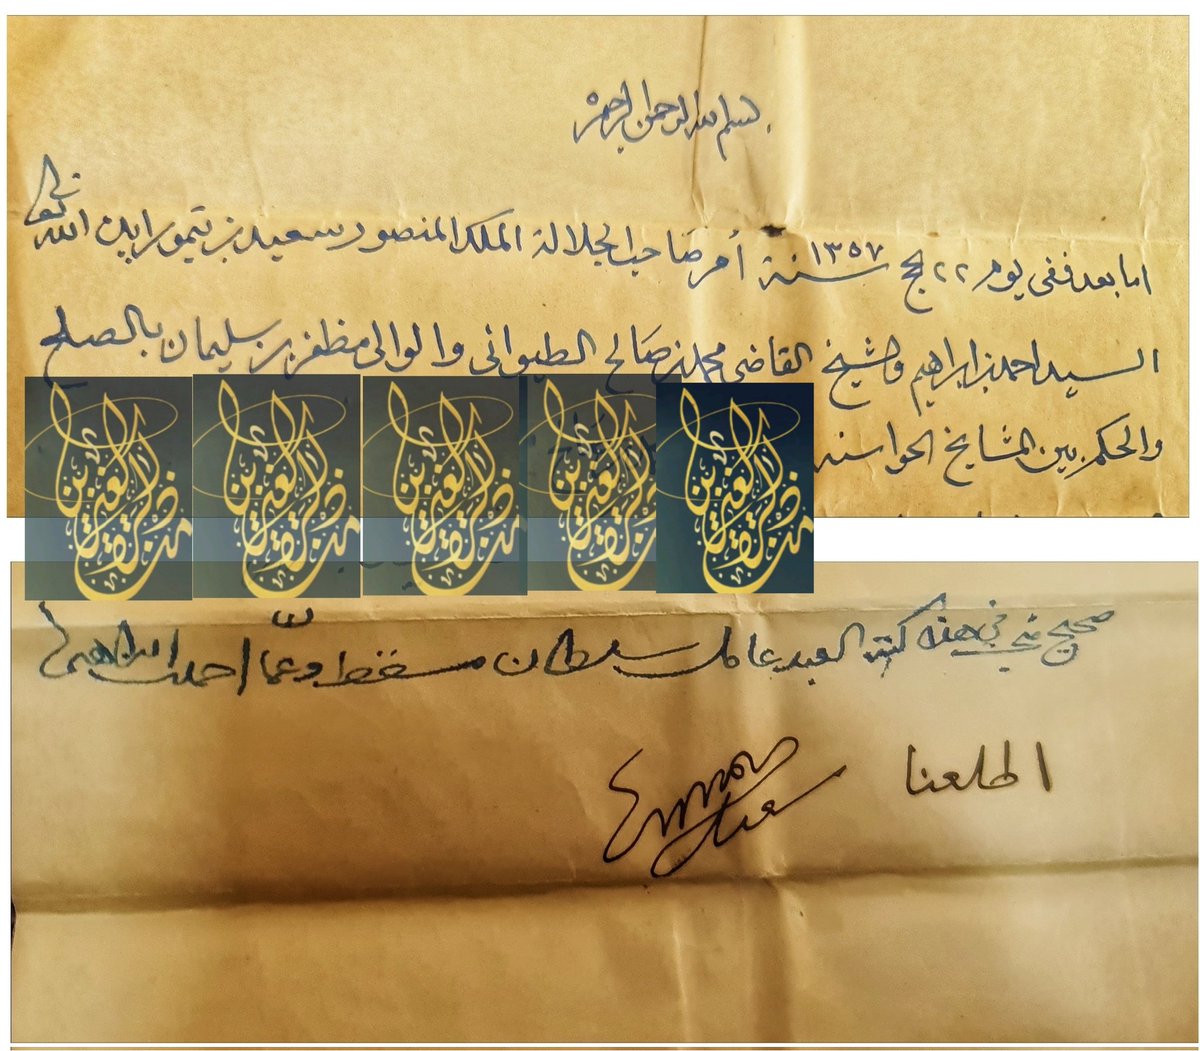 بسم الله الرحمن الرحيم
اما بعد ففي يوم ٢٢ لحج سنة ١٣٥٧ أمر صاحب الجلالة الملك المنصور سعيد بن تيمور ايده الله
السيد احمد بن ابراهيم والشيخ القاضي محمد بن صالح الطيواني والوالي مظفر بن سليمان بالصلح
والحكم بين المشايخ الحواسنه
صحيح في هذه كتبه العبد عامل سلطان مسقط وعمان احمد بن ابراهيم
اطلعنا